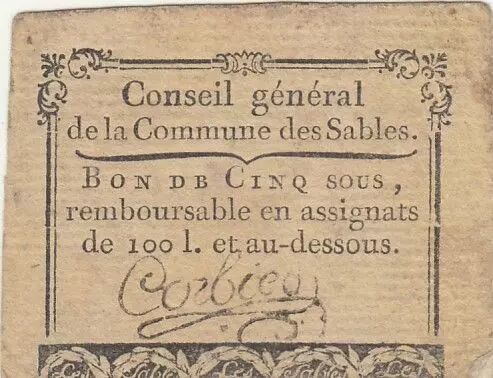 Conseil général
de la Commune des Sables.
BON DB CINQ SOUS,
remboursable en assignats
de 100 l. et au-dessous.
Corbies
Les Sables Les Sables Les